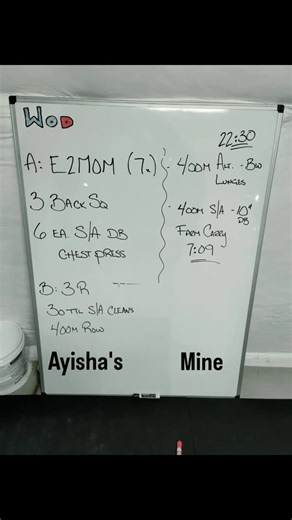 WOD
A: E2MOM (7x)
3 BACK SQ
6 EA. S/A DB
CHEST PRESS
B: 3R
30 TTL S/A CLEANS
400M ROW
Ayisha's
22:30
400M ALT. - BW
LUNGES
400M S/A - 10#
DB
FROM CARRY
7:09
Mine